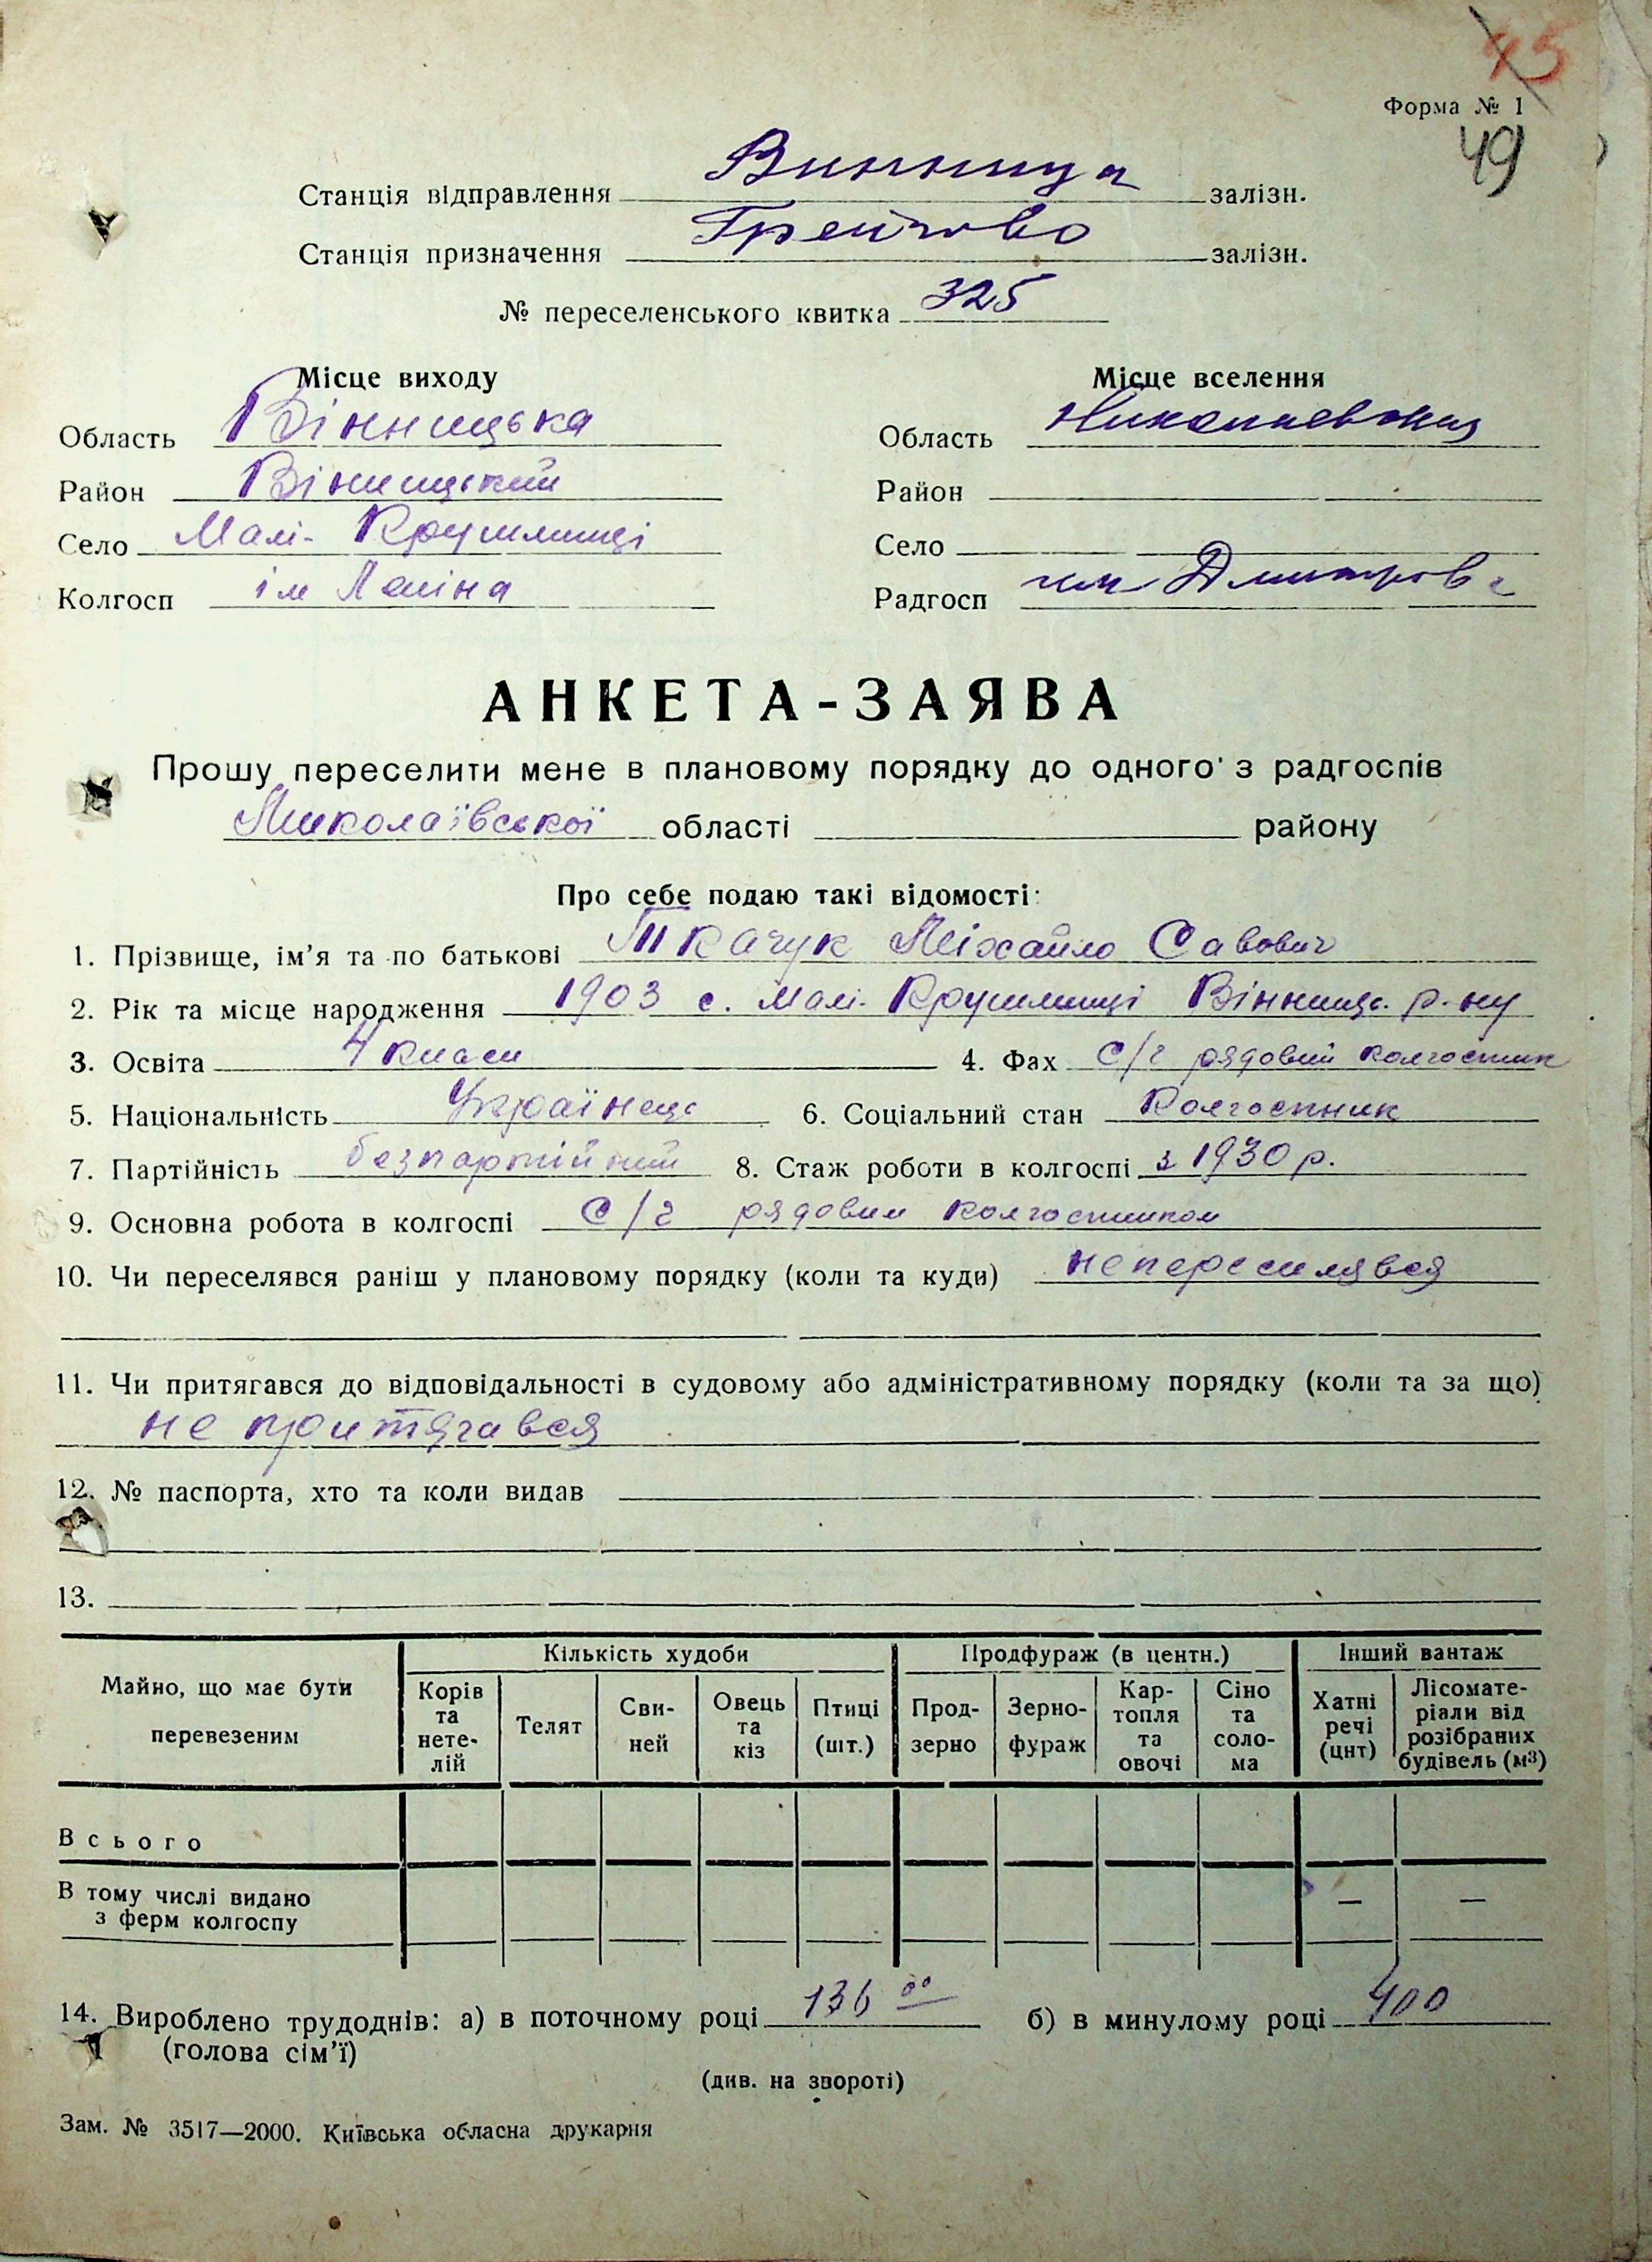 45
Форма № 1
49
Станція відправлення Винница залізн.
Станція призначення Грейгово залізн.
№ переселенського квитка 325
Місце виходу Місце вселення
Область Вінницька Область Николаевская
Район Вінницький Район
Село Малі-Крушлинці Село
Колгосп ім Леніна Радгосп им Димитрова
АНКЕТА-ЗАЯВА
Прошу переселити мене в плановому порядку до одного з радгоспів
Миколаївської області району
Про себе подаю такі відомості:
1. Прізвище, ім'я та по батькові Ткачук Міхайло Савович
2. Рік та місце народження 1903 с. Малі-Крушлинці Вінниць. р-ну
3. Освіта 4 класи 4. Фах с/г рядовий колгоспник
5. Національність Українець 6. Соціальний стан Колгоспник
7. Партійність безпартійний 8. Стаж роботи в колгоспі з 1930 р.
9. Основна робота в колгоспі с/г рядовим колгоспником
10. Чи переселявся раніш у плановому порядку (коли та куди) не переселявся
11. Чи притягався до відповідальності в судовому або адміністративному порядку (коли та за що)
не притягався
12. № паспорта, хто та коли видав
13.
Майно, що має бути перевезеним
Кількість худоби Продфураж (в центн.) Інший вантаж
Корів та нете-лій Телят Сви-ней Овець та кіз Птиці (шт.) Прод-зерно Зерно-фураж Кар-топля та овочі Сіно та соло-ма Хатні речі (цнт) Лісомате-ріали від розібраних будівель (м³)
Всього
В тому числі видано
з ферм колгоспу — —
14. Вироблено трудоднів: а) в поточному році 136 00 б) в минулому році 400
(голова сім'ї)
(див. на звороті)
Зам. № 3517—2000. Київська обласна друкарня